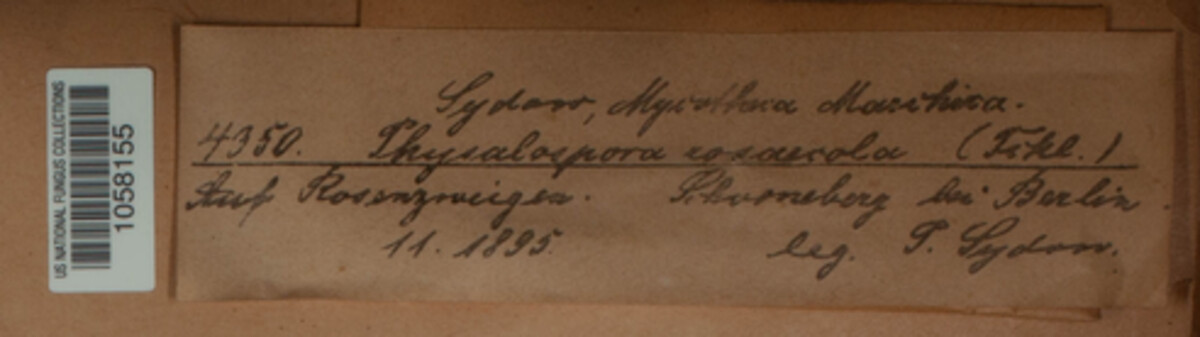 US NATIONAL FUNGUS COLLECTIONS
1058155
Sydow, Mycotheca Marchica.
4350. Physalospora rosaecola (Fckl.)
Auf Rosenzweigen. Schoneberg bei Berlin.
11. 1895. leg. P. Sydow.